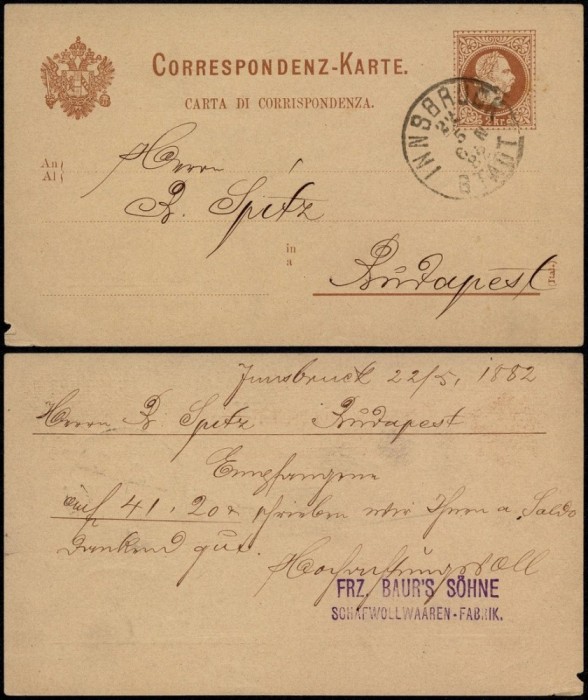 CORRESPONDENZ-KARTE.
CARTA DI CORRISPONDENZA.
2 kr.
INNSBRUCK STADT
22 5
An
Al
Herrn
B. Spitz
in
a
Budapest
(Ital.)
Innsbruck 22/5. 1882
Herrn B. Spitz Budapest
Empfangene
auf 41.20 x schrieben wir Ihnen a Saldo
dankend gut.
Hochachtungsvoll
FRZ. BAUR'S SÖHNE
SCHAFWOLLWAAREN-FABRIK.